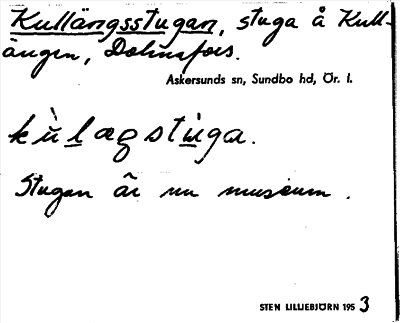 Kullängsstugan, stuga å Kull-
ängen, Dohnafors.
Askersunds sn, Sundbo hd, Ör. l.
kùlægstùga.
Stugan är nu museum.
STEN LILLIEBJÖRN 1953